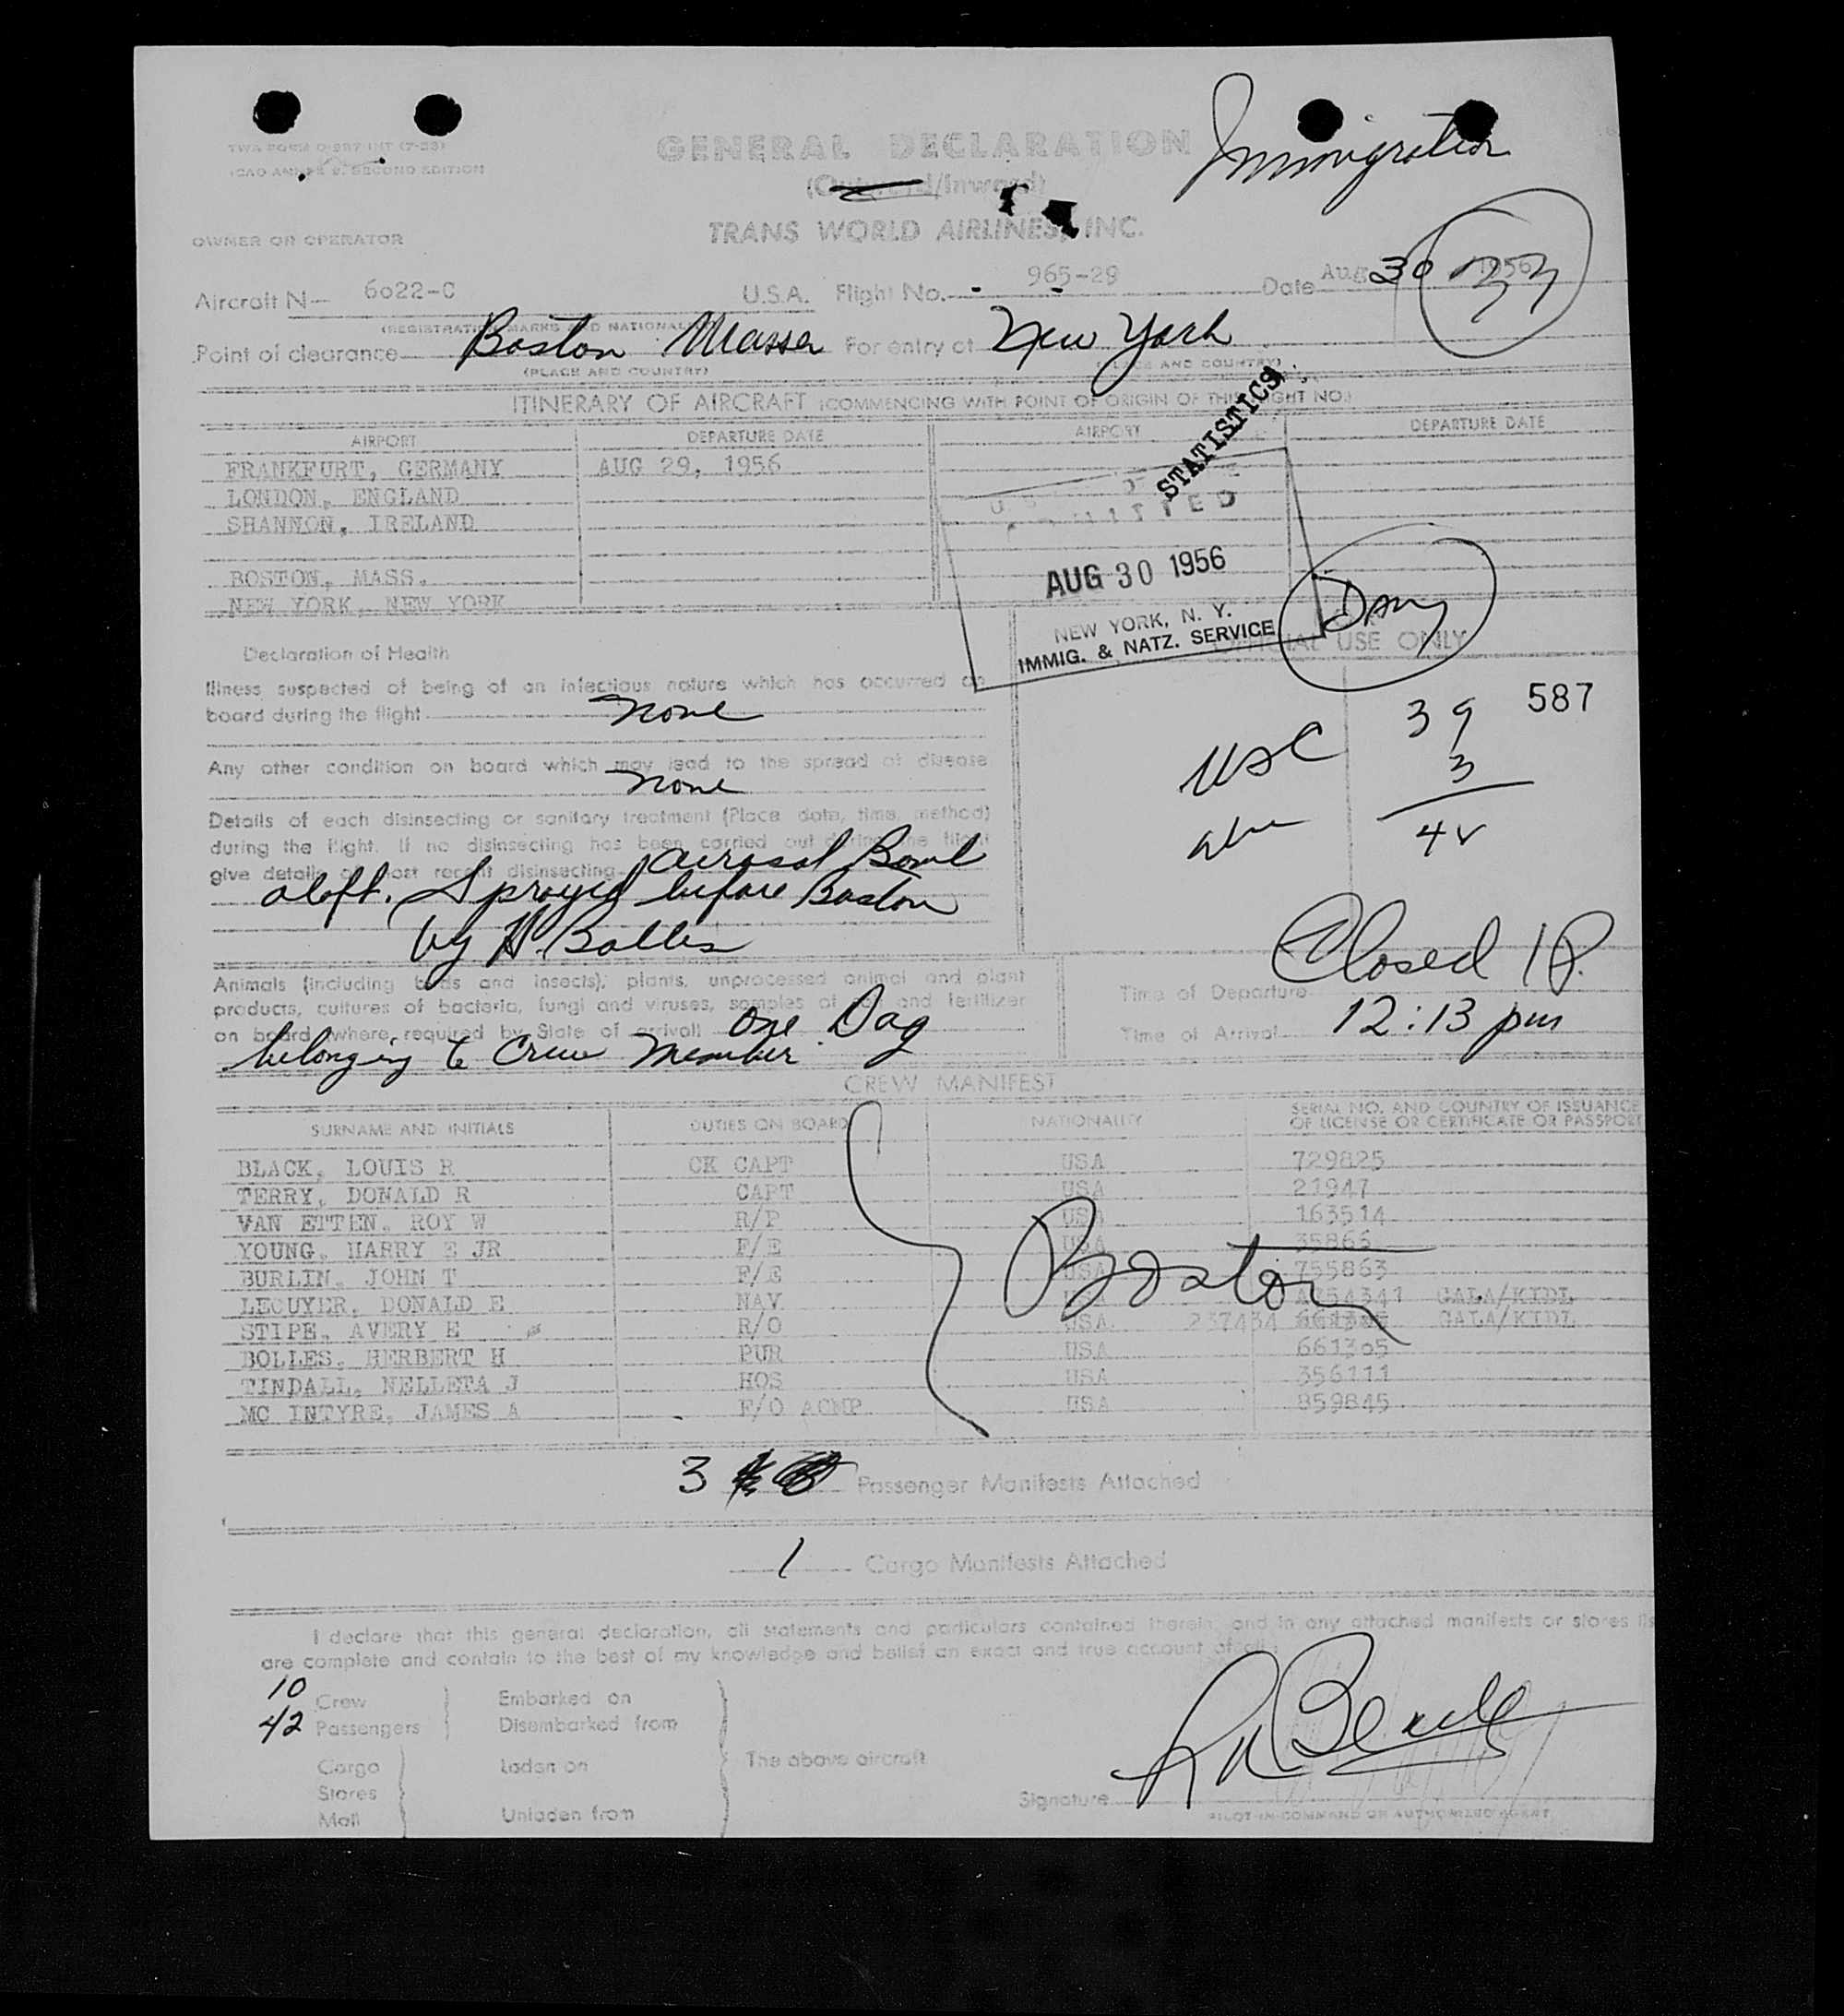 Immigration
TWA FORM
ICAO ANNEX 9, SECOND EDITION
GENERAL DECLARATION
(Outward/Inward)
OWNER OR OPERATOR
TRANS WORLD AIRLINES, INC.
Aircraft N— 6022-C U.S.A. Flight No. 965-29 Date Aug 30 1956
33
(REGISTRATION MARKS AND NATIONALITY
Point of clearance Boston Masser For entry at New York
(PLACE AND COUNTRY) (PLACE AND COUNTRY)
STATISTICS
ITINERARY OF AIRCRAFT (COMMENCING WITH POINT OF ORIGIN OF THIS FLIGHT NO.)
AIRPORT DEPARTURE DATE AIRPORT DEPARTURE DATE
FRANKFURT, GERMANY AUG 29, 1956
LONDON, ENGLAND
SHANNON, IRELAND
BOSTON, MASS.
NEW YORK, NEW YORK
AUG 30 1956
NEW YORK, N. Y.
IMMIG. & NATZ. SERVICE
OFFICIAL USE ONLY
Declaration of Health
Illness suspected of being of an infectious nature which has occurred on
board during the flight none
587
Any other condition on board which may lead to the spread of disease
none
USC 39
3
42
Details of each disinsecting or sanitary treatment (Place date, time, method)
during the flight. If no disinsecting has been carried out during the flight
give details of most recent disinsecting aerosol Bomb
aloft. Sprayed before Boston
by H. Bolles
Closed 1P.
Animals (including birds and insects), plants, unprocessed animal and plant
products, cultures of bacteria, fungi and viruses, samples of soil and fertilizer
on board (where required by State of arrival) One Dog
belonging to Crew Member
Time of Departure
Time of Arrival 12:13 pm
CREW MANIFEST
SURNAME AND INITIALS DUTIES ON BOARD NATIONALITY SERIAL NO. AND COUNTRY OF ISSUANCE
OF LICENSE OR CERTIFICATE OR PASSPORT
BLACK, LOUIS R CK CAPT USA 729825
TERRY, DONALD R CAPT USA 21947
VAN ETTEN, ROY W R/P USA 163514
YOUNG, HARRY E JR F/E USA 35866
BURLIN, JOHN T F/E USA 755863
LECUYER, DONALD E NAV USA A254341 GALA/KIDL
STIPE, AVERY E R/O USA 237434 GALA/KIDL
BOLLES, HERBERT H PUR USA 661305
TINDALL, NELLETA J HOS USA 356111
MC INTYRE, JAMES A F/O ACMP USA 859845
Boston
3 Passenger Manifests Attached
1 Cargo Manifests Attached
I declare that this general declaration, all statements and particulars contained therein, and in any attached manifests or stores lis
are complete and contain to the best of my knowledge and belief an exact and true account of all
10 Crew Embarked on
42 Passengers Disembarked from
Cargo Laden on The above aircraft
Stores
Mail Unladen from
Signature
PILOT-IN-COMMAND OR AUTHORIZED AGENT